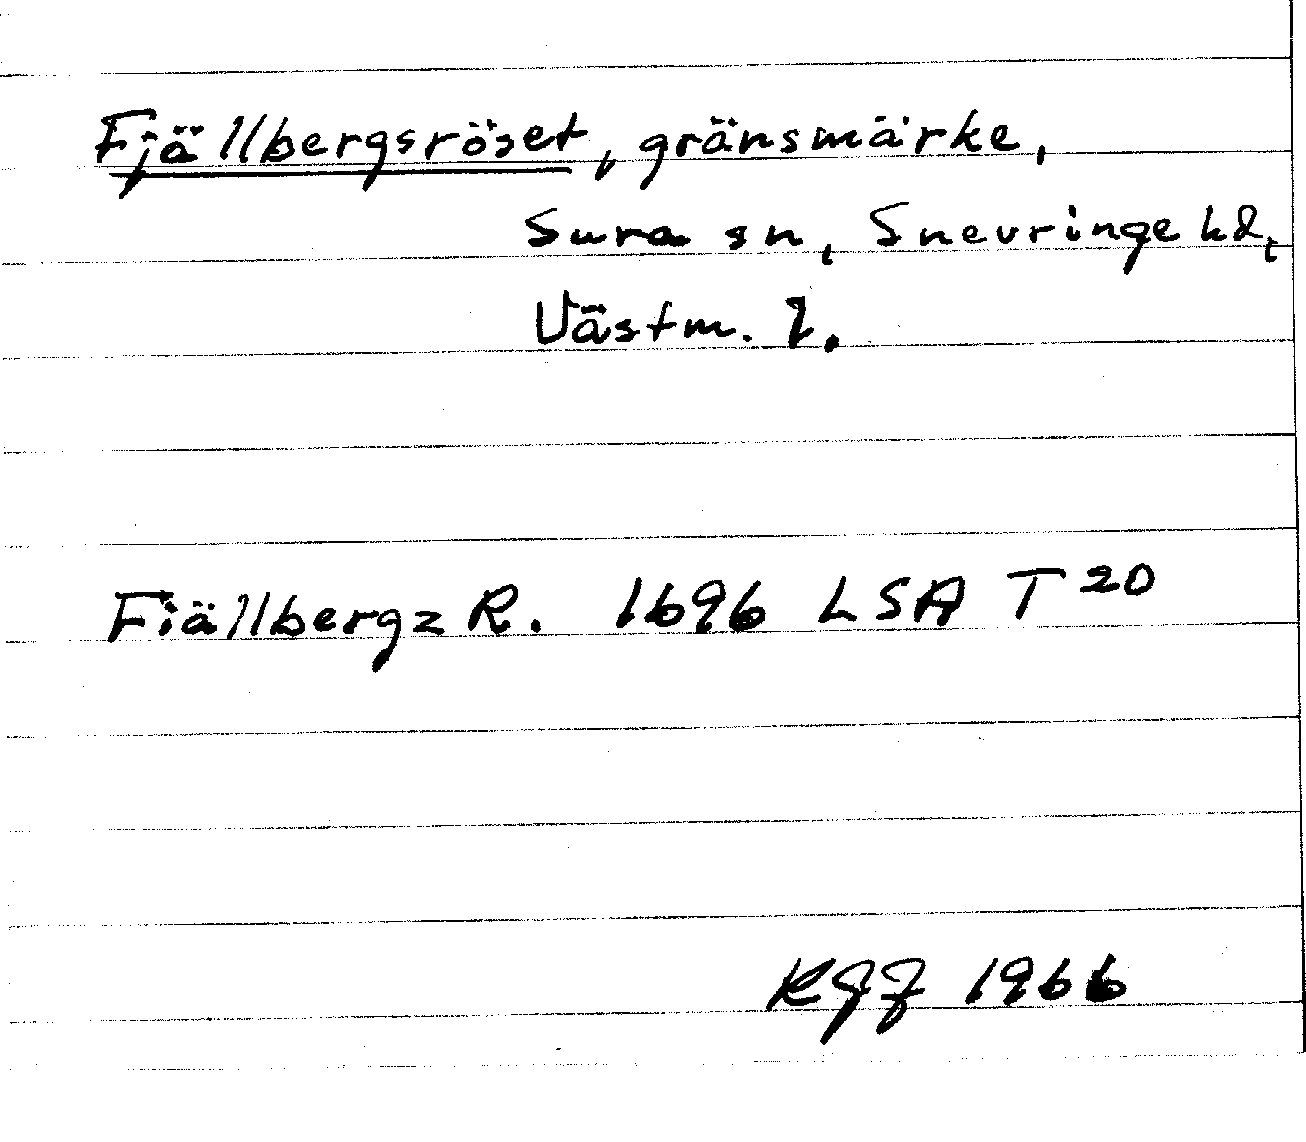 Fjällbergsröset, gränsmärke,
Sura sn, Snevringe hd,
Västm. l.
Fiällbergz R. 1696 LSA T 20
1966